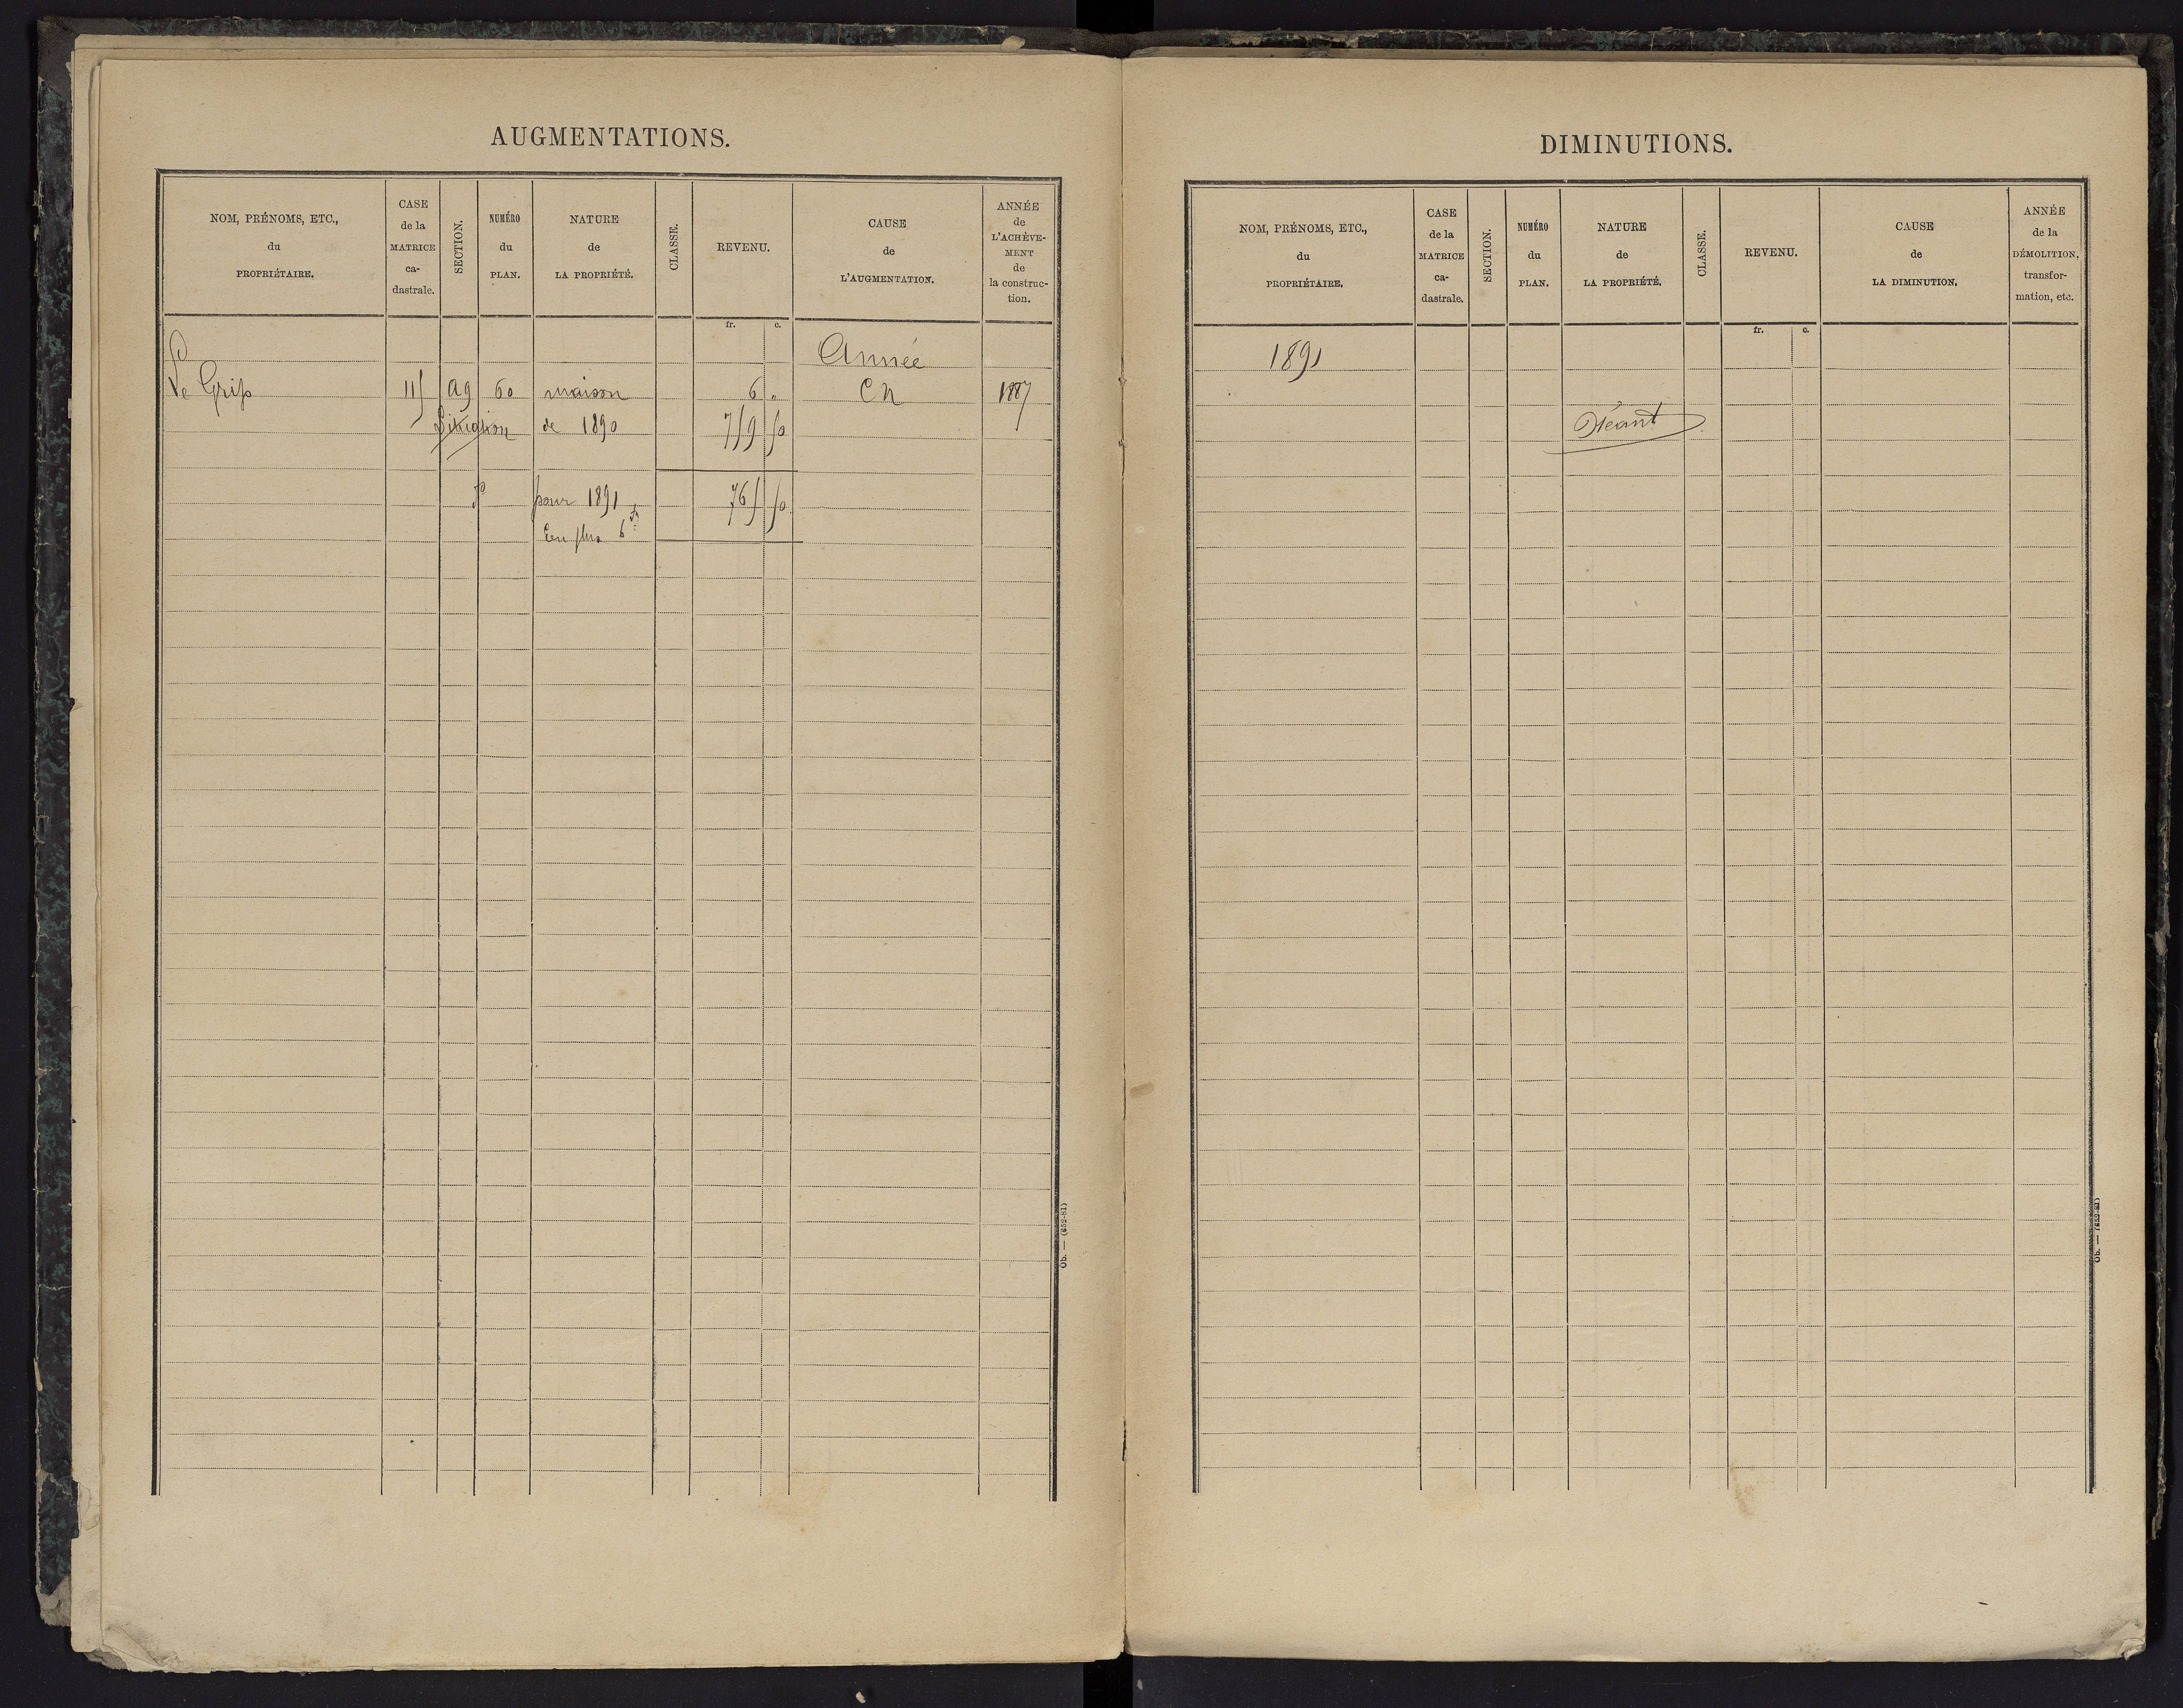 AUGMENTATIONS.
NOM, PRÉNOMS, ETC.,
du
PROPRIÉTAIRE.
CASE
de la
MATRICE
ca-
dastrale.
SECTION.
NUMÉRO
du
PLAN.
NATURE
de
LA PROPRIÉTÉ.
CLASSE.
REVENU.
CAUSE
de
L'AUGMENTATION.
ANNÉE
de
L'ACHÈVE-
MENT
de
la construc-
tion.
fr. c.
Année
Le Griss 115 ag 60 maison 6 " CN 1887
de 1890 759 50
pour 1891 765 50
En plus 6 fr
Ob. — (652-81)
DIMINUTIONS.
NOM, PRÉNOMS, ETC.,
du
PROPRIÉTAIRE.
CASE
de la
MATRICE
ca-
dastrale.
SECTION.
NUMÉRO
du
PLAN.
NATURE
de
LA PROPRIÉTÉ.
CLASSE.
REVENU.
CAUSE
de
LA DIMINUTION.
ANNÉE
de la
DÉMOLITION,
transfor-
mation, etc.
fr. c.
1891
Néant
Ob. — (652-81)